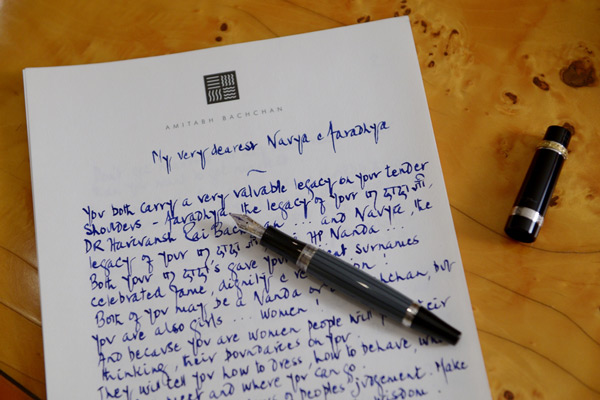 AMITABH BACHCHAN
My very dearest Navya & Aaradhya
You both carry a very valuable legacy on your tender
shoulders - Aaradhya, the legacy of your
DR Harivansh Rai Bachchan ... and Navya, the
legacy of your HP Nanda ...
Both your gave you surnames
celebrated fame, dignity &
Both of you may be a Nanda or but
you are also girls ... women !
And because you are women people will their
thinking, their boundaries on you.
They will tell you how to dress, how to behave,
meet and where you can go.
of people's judgement. Make
wisdom.